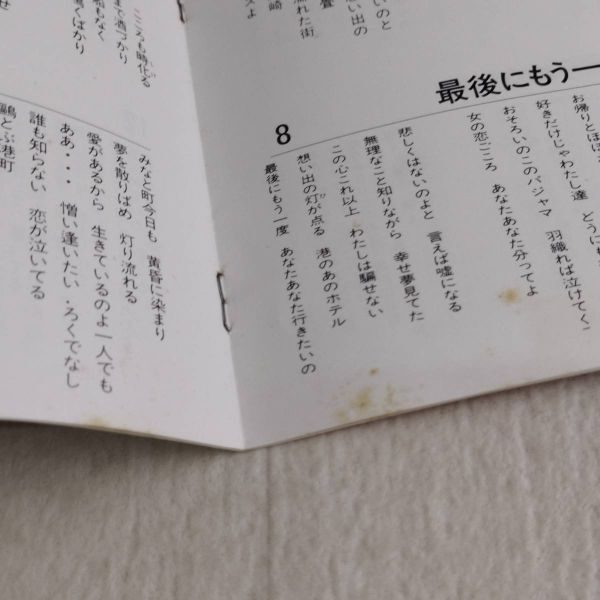 最後にもう一
8
お帰りとほほ
好きだけじゃわたし達 どうにも
おそろいのこのパジャマ 羽織れば泣けてく
女の恋ごころ あなたあなた分ってよ
悲しくはないのよと 言えば嘘になる
無理なこと知りながら 幸せ夢見てた
この心これ以上 わたしは騙せない
想い出の灯が点る 港のあのホテル
最後にもう一度 あなたあなた行きたいの
いのと
想い出の
畳
流れた街
崎
スよ
こころも時化る
鳴くばかり
みなと町今日も 黄昏に染まり
夢を散りばめ 灯り流れる
愛があるから 生きているのよ一人でも
ああ・・・ 憎い逢いたい・ろくでなし
誰も知らない 恋が泣いてる
鷗とぶ港町